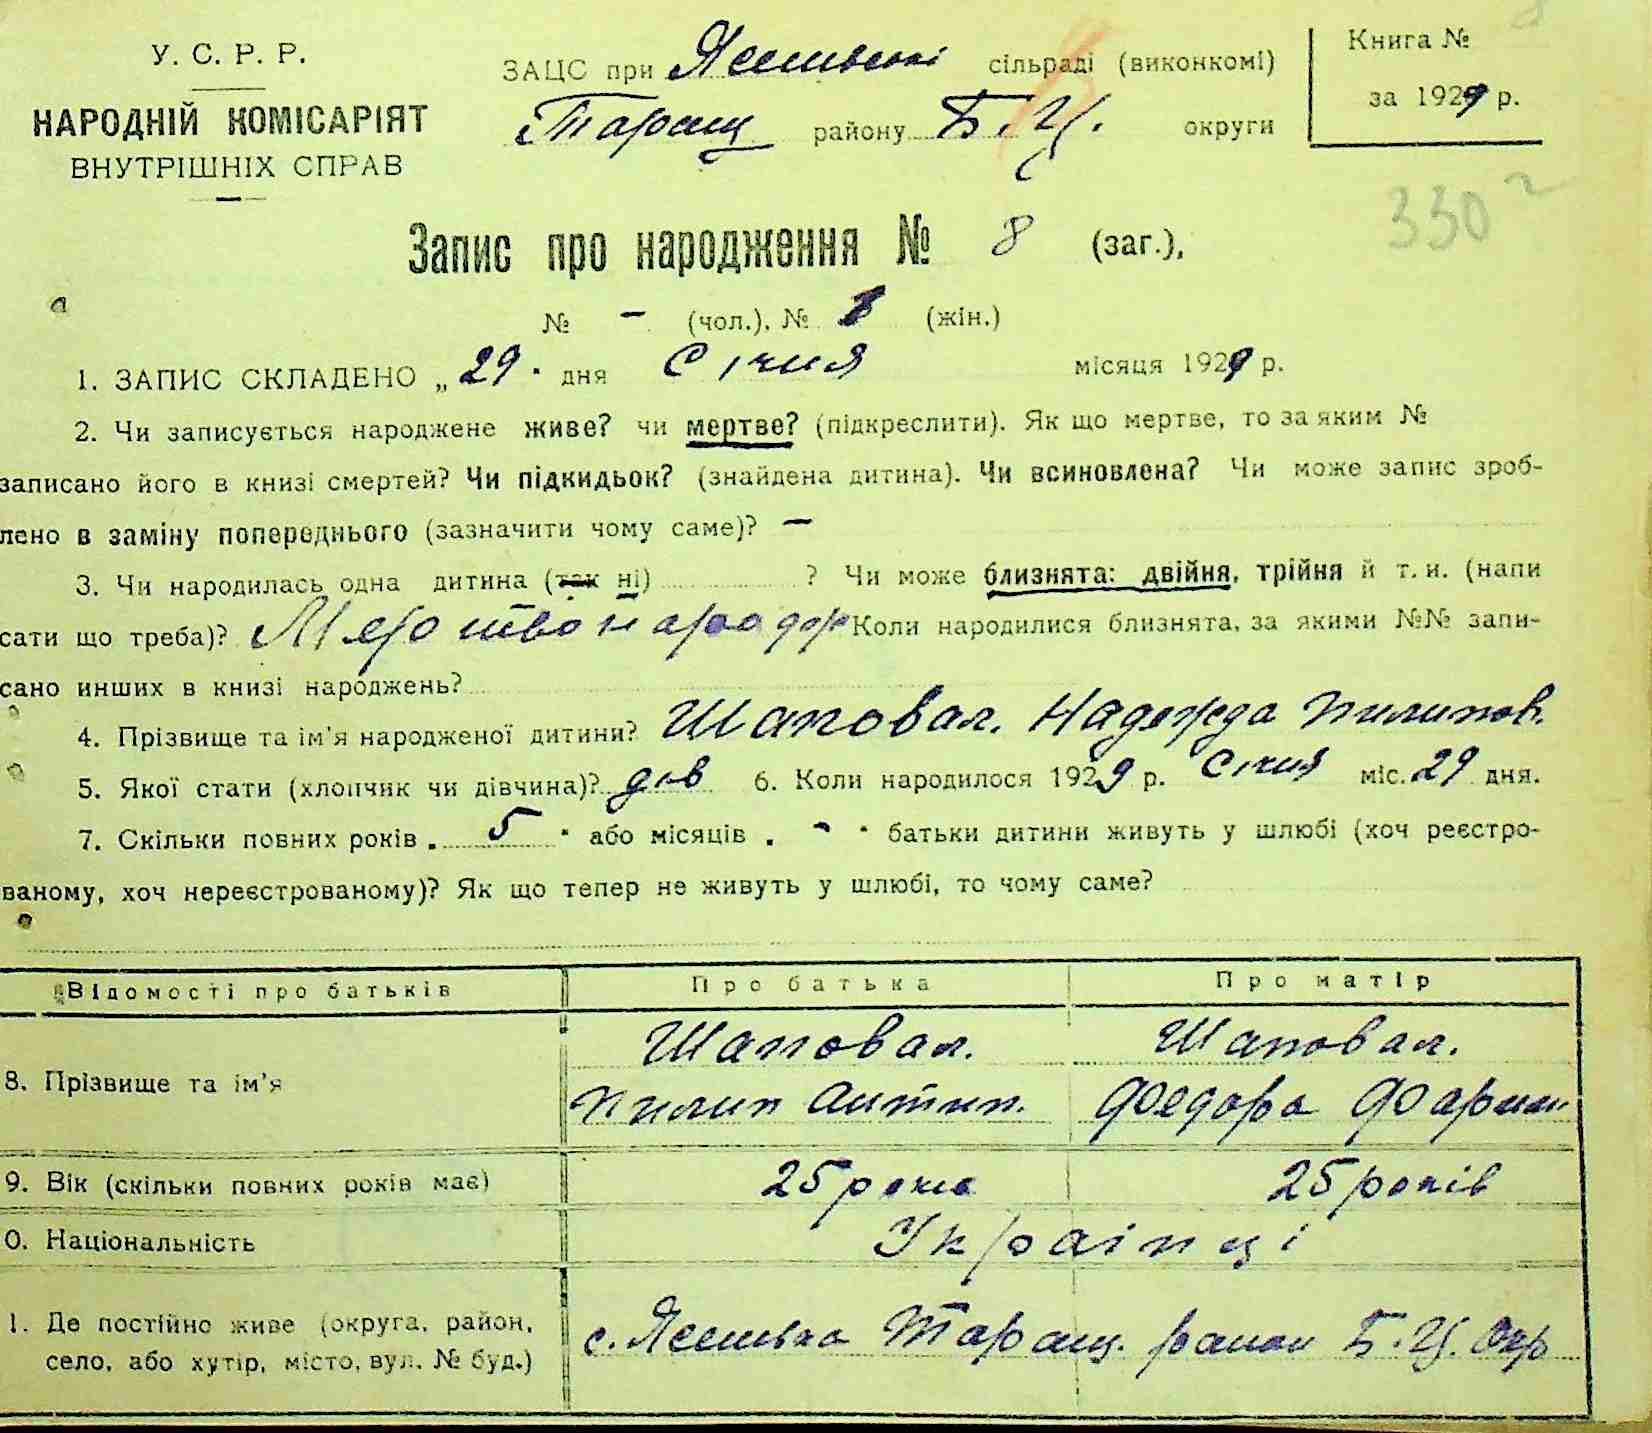 У. С. Р. Р.
НАРОДНІЙ КОМІСАРІЯТ
ВНУТРІШНІХ СПРАВ
ЗАЦС при Ясенівські сільраді (виконкомі)
Таращ району Б.Ц. округи
Книга №
за 1929 р.
330
Запис про народження № 8 (заг.),
№ – (чол.), № (жін.)
1. ЗАПИС СКЛАДЕНО „ 29 · дня Січня місяця 1929 р.
2. Чи записується народжене живе? чи мертве? (підкреслити). Як що мертве, то за яким №
записано його в книзі смертей? Чи підкидьок? (знайдена дитина). Чи всиновлена? Чи може запис зроб-
лено в заміну попереднього (зазначити чому саме)? –
3. Чи народилась одна дитина (так ні) ? Чи може близнята: двійня, трійня й т. и. (напи
сати що треба)? Мертвонарод Коли народилися близнята, за якими №№ запи-
сано инших в книзі народжень?
4. Прізвище та ім'я народженої дитини? Шаповал. Надежда Пилипов.
5. Якої стати (хлопчик чи дівчина)? дів 6. Коли народилося 1929 р. Січня міс. 29 дня.
7. Скільки повних років . 5 · або місяців . – · батьки дитини живуть у шлюбі (хоч реєстро-
ваному, хоч нереєстрованому)? Як що тепер не живуть у шлюбі, то чому саме?
Відомості про батьків Про батька Про матір
8. Прізвище та ім'я Шаповал. Шаповал.
Пилип Антип. Федора
9. Вік (скільки повних років має) 25 років 25 років
0. Національність Українці
1. Де постійно живе (округа, район,
село, або хутір, місто, вул. № буд.) с. Ясенівка Таращ. район Б.Ц. Окр